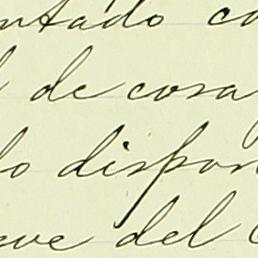 ntado co
de cosa
do dispon
eve del